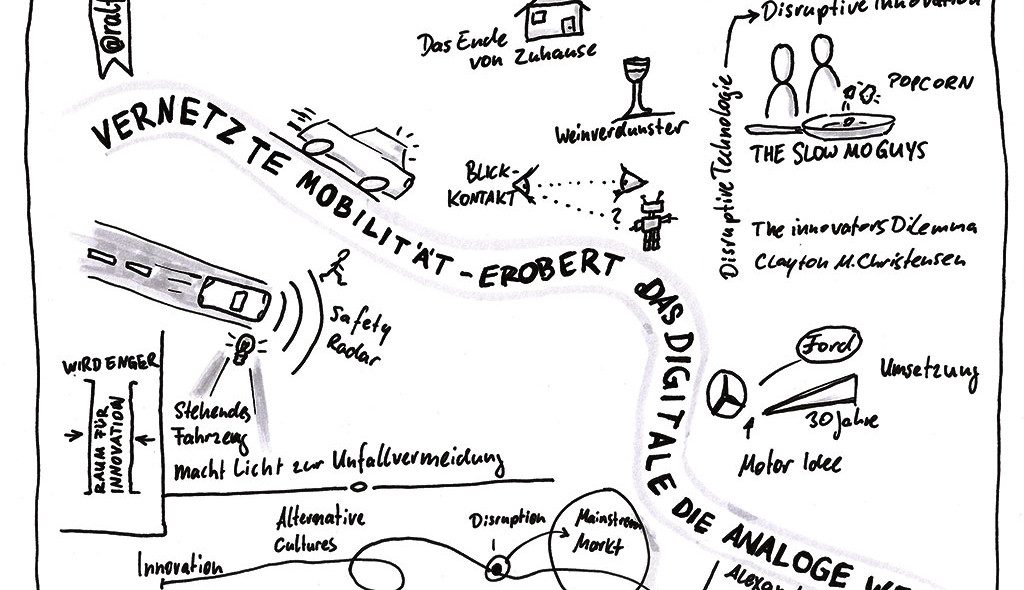 Disruptive Innovation
Das Ende
von Zuhause
Disruptive Technologie
POPCORN
THE SLOW MO GUYS
Weinverdunster
BLICK-
KONTAKT
?
The innovators Dilemma
Clayton M. Christensen
VERNETZTE MOBILITÄT - EROBERT DAS DIGITALE DIE ANALOGE
Safety
Radar
Ford
Umsetzung
30 Jahre
Motor Idee
WIRD ENGER
RAUM FÜR
INNOVATION
Stehendes
Fahrzeug
macht Licht zur Unfallvermeidung
Alternative
Cultures
Disruption
Mainstream
Markt
Innovation